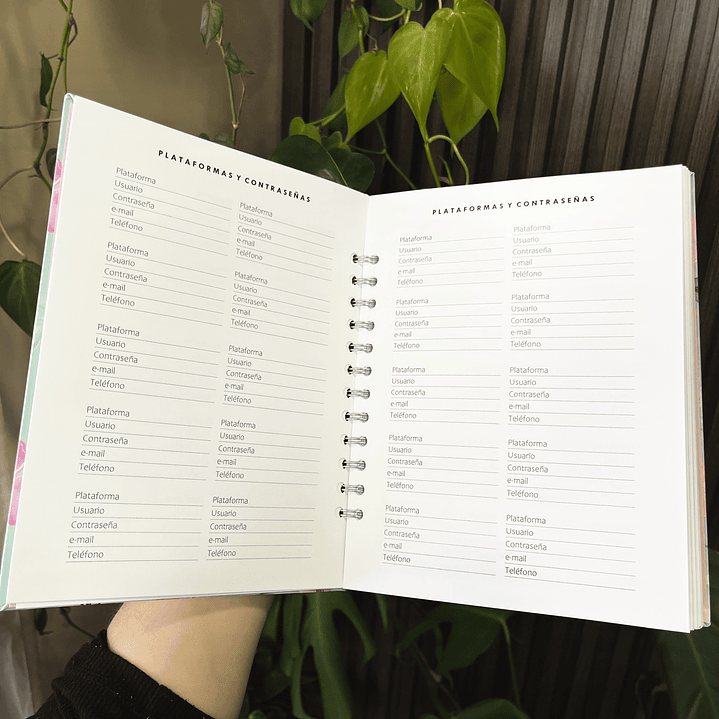 PLATAFORMAS Y CONTRASEÑAS
Plataforma
Usuario
Contraseña
e-mail
Teléfono
Plataforma
Usuario
Contraseña
e-mail
Teléfono
Plataforma
Usuario
Contraseña
e-mail
Teléfono
Plataforma
Usuario
Contraseña
e-mail
Teléfono
Plataforma
Usuario
Contraseña
e-mail
Teléfono
Plataforma
Usuario
Contraseña
e-mail
Teléfono
Plataforma
Usuario
Contraseña
e-mail
Teléfono
Plataforma
Usuario
Contraseña
e-mail
Teléfono
Plataforma
Usuario
Contraseña
e-mail
Teléfono
Plataforma
Usuario
Contraseña
e-mail
Teléfono
PLATAFORMAS Y CONTRASEÑAS
Plataforma
Usuario
Contraseña
e-mail
Teléfono
Plataforma
Usuario
Contraseña
e-mail
Teléfono
Plataforma
Usuario
Contraseña
e-mail
Teléfono
Plataforma
Usuario
Contraseña
e-mail
Teléfono
Plataforma
Usuario
Contraseña
e-mail
Teléfono
Plataforma
Usuario
Contraseña
e-mail
Teléfono
Plataforma
Usuario
Contraseña
e-mail
Teléfono
Plataforma
Usuario
Contraseña
e-mail
Teléfono
Plataforma
Usuario
Contraseña
e-mail
Teléfono
Plataforma
Usuario
Contraseña
e-mail
Teléfono